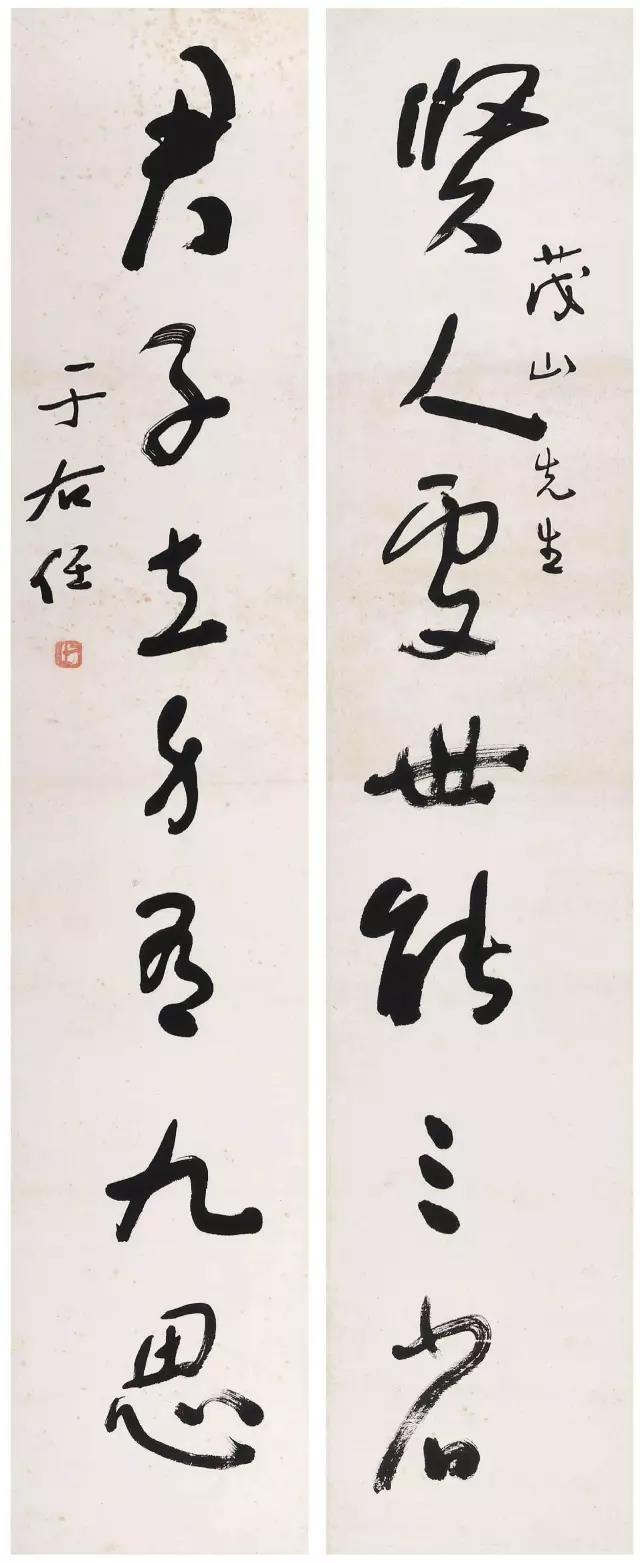 賢人處世能三省
茂山先生
君子立身有九思
于右任